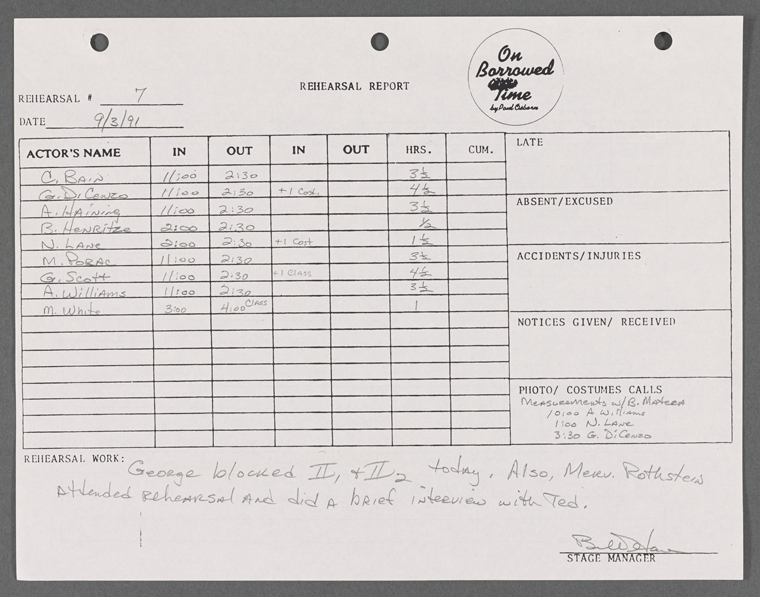 On
Borrowed
Time
by Paul Osborn
REHEARSAL REPORT
REHEARSAL # 7
DATE 9/3/91
ACTOR'S NAME IN OUT IN OUT HRS. CUM.
C. Bain 11:00 2:30 3½
G. DiCenzo 11:00 2:30 +1 Cost. 4½
A. Haining 11:00 2:30 3½
B. Henritze 2:00 2:30 ½
N. Lane 2:00 2:30 +1 Cost 1½
M. Porac 11:00 2:30 3½
G. Scott 11:00 2:30 +1 Class 4½
A. Williams 11:00 2:30 3½
M. White 3:00 4:00 Class 1
LATE
ABSENT/EXCUSED
ACCIDENTS/INJURIES
NOTICES GIVEN/ RECEIVED
PHOTO/ COSTUMES CALLS
Measurements w/ B. Matera
10:00 A Williams
1:00 N. Lane
3:30 G. DiCenzo
REHEARSAL WORK:
George blocked II, + II2 today. Also, Merv. Rothstein
attended rehearsal and did a brief interview with Ted.
STAGE MANAGER